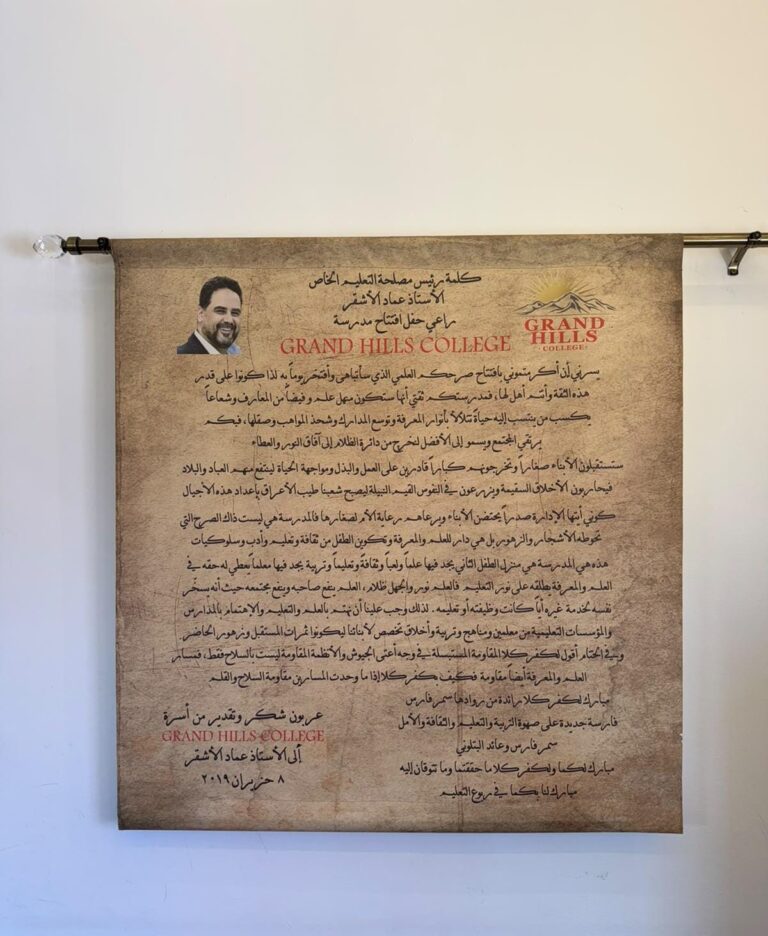 كلمة رئيس مصلحة التعليم الخاص
الأستاذ عماد الأشقر
راعي حفل افتتاح مدرسة
GRAND HILLS COLLEGE
GRAND
HILLS
COLLEGE
يسرني أن أكرمتموني بافتتاح صرحكم العلمي الذي سأتباهى وأفتخر يوماً به لذا كونوا على قدر
هذه الثقة وأنتم أهل لها، فمدرستكم ثقتي أنها ستكون منهل علم وفيضاً من المعارف وشعاعاً
يكسب من ينتسب إليه حياة تتلألأ بأنوار المعرفة وتوسع المدارك وشحذ المواهب وصقلها، فبكم
يرتقي المجتمع ويسمو إلى الأفضل لنخرج من دائرة الظلام إلى آفاق النور والعطاء
ستستقبلون الأبناء صغاراً وتخرجونهم كباراً قادرين على العمل والبذل ومواجهة الحياة لينتفع منهم العباد والبلاد
فيحاربون الأخلاق السقيمة ويزرعون في النفوس القيم النبيلة ليصبح شعبنا طيب الأعراق بإعداد هذه الأجيال
كوني أيتها الإدارة صدراً يحتضن الأبناء ويرعاهم رعاية الأم لصغارها فالمدرسة هي ليست ذاك الصرح التي
تحوطه الأشجار والزهور بل هي دار للعلم والمعرفة وتكوين الطفل من ثقافة وتعليم وأدب وسلوكيات
هذه هي المدرسة هي منزل الطفل الثاني يجد فيها علماً ولعباً وثقافة وتعليماً وتربية يجد فيها معلماً يعطي له حقه في
العلم والمعرفة يطلقه على نور التعليم فالعلم نور والجهل ظلام، العلم ينفع صاحبه وينفع مجتمعه حيث أنه يسخّر
نفسه لخدمة غيره أياً كانت وظيفته أو تعليمه. لذلك وجب علينا أن نهتم بالعلم والتعليم والإهتمام بالمدارس
والمؤسسات التعليمية من معلمين ومناهج وتربية وأخلاق تخصص لأبنائنا ليكونوا ثمرات المستقبل وزهور الحاضر
وفي الختام أقول لكفركلا المقاومة المستبسلة في وجه أعتى الجيوش والأنظمة المقاومة ليست بالسلاح فقط، فمسار
العلم والمعرفة أيضاً مقاومة فكيف كفركلا إذا ما وحدت المسارين مقاومة السلاح والقلم
مبارك لكفركلا رائدة من روادها سمر فارس
فارسة جديدة على صهوة التربية والتعليم والثقافة والأمل
سمر فارس وعائد البتلوني
مبارك لكما ولكفركلا ما حققتما وما تتوقان إليه
مبارك لنا بكما في ربوع التعليم
عربون شكر وتقدير من أسرة
GRAND HILLS COLLEGE
إلى الأستاذ عماد الأشقر
٨ حزيران ٢٠١٩